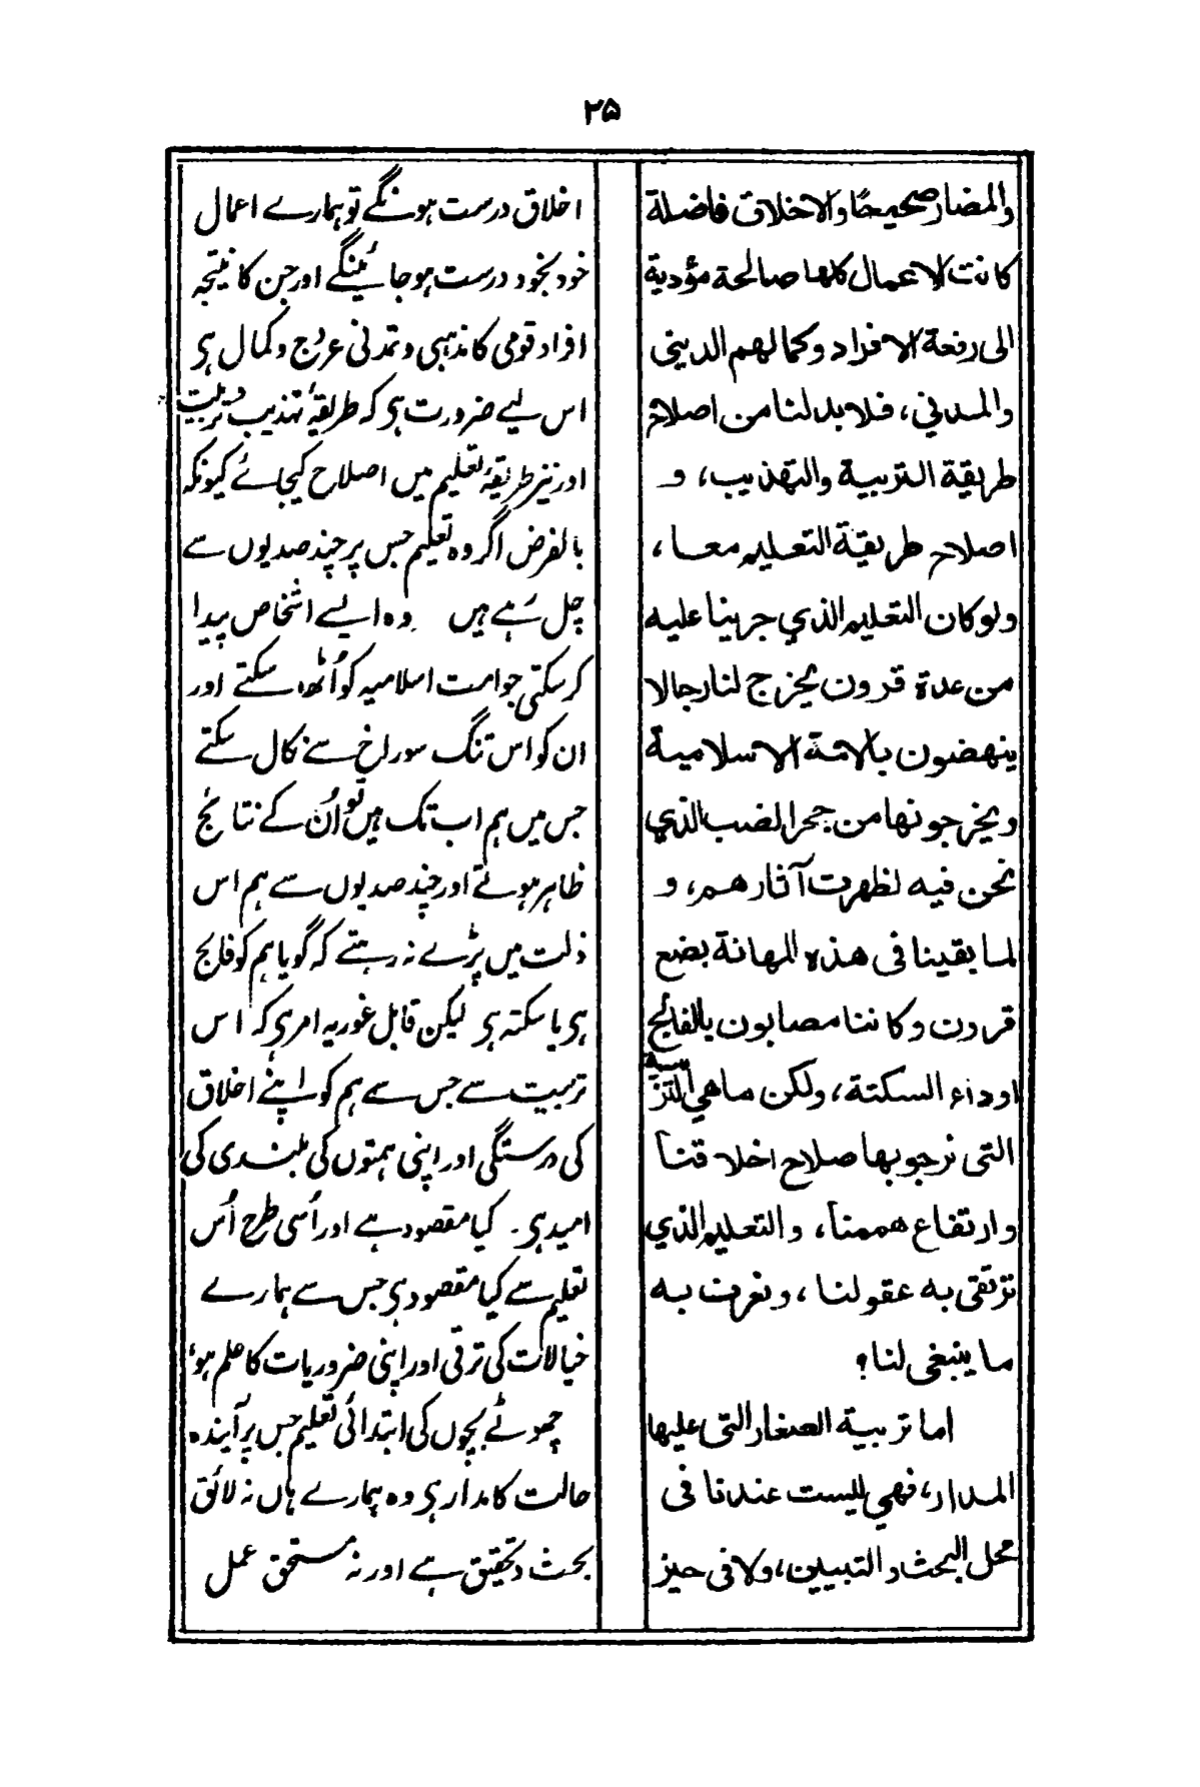 ۲۵
والمضار صحيحًا والاخلاق فاضلة
كانت الاعمال كلها صالحة مؤدية
الى رفعة الافراد وكمالهم الديني
والمدني، فلا بد لنا من اصلاح
طريقة التربية والتهذيب، و
اصلاح طريقة التعليم معا،
ولو كان التعليم الذي جرينا عليه
من عدة قرون يخرج لنا رجالا
ينهضون بالامة الاسلامية
ويخرجونها من جحر الضب الذي
نحن فيه لظهرت آثارهم، و
لما بقينا فى هذه المهانة بضع
قرون وكاننا مصابون بالفالج
او داء السكتة، ولكن ما هي التربية
التى نرجو بها صلاح اخلاقنا
وارتفاع هممنا، والتعليم الذي
ترتقى به عقولنا، ونعرف به
ما ينبغى لنا؟
اما تربية الصغار التى عليها
المدار، فهي ليست عندنا فى
محل البحث والتبيين، ولا فى حيز
اخلاق درست ہونگے تو ہمارے اعمال
خود بخود درست ہو جائینگے اور جن کا نتیجہ
افراد قومی کا مذہبی و تمدنی عروج و کمال ہی
اس لیے ضرورت ہی کہ طریقۂ تہذیب و تربیت
اور نیز طریقۂ تعلیم میں اصلاح کیجائے کیونکہ
بالفرض اگر وہ تعلیم جس پر چند صدیوں سے
چل رہے ہیں وہ ایسے اشخاص پیدا
کر سکتی جو امت اسلامیہ کو اُٹھا سکتے اور
ان کو اس تنگ سوراخ سے نکال سکتے
جس میں ہم اب تک ہیں تو اُن کے نتائج
ظاہر ہوتے اور چند صدیوں سے ہم اس
ذلت میں پڑے نہ رہتے کہ گویا ہم کو فالج
ہی یا سکتہ ہی لیکن قابل غور یہ امر ہی کہ اس
تربیت سے جس سے ہم کو اپنے اخلاق
کی درستگی اور اپنی ہمتوں کی بلندی کی
امید ہی۔ کیا مقصود ہے اور اُسی طرح اُس
تعلیم سے کیا مقصود ہی جس سے ہمارے
خیالات کی ترقی اور اپنی ضروریات کا علم ہو
چھوٹے بچوں کی ابتدائی تعلیم جس پر آیندہ
حالت کا مدار ہی وہ ہمارے ہاں نہ لائق
بحث و تحقیق ہے اور نہ مستحق عمل